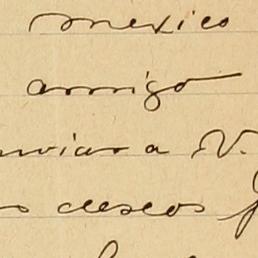 mexico
amigo
enviar a V.
os deseos